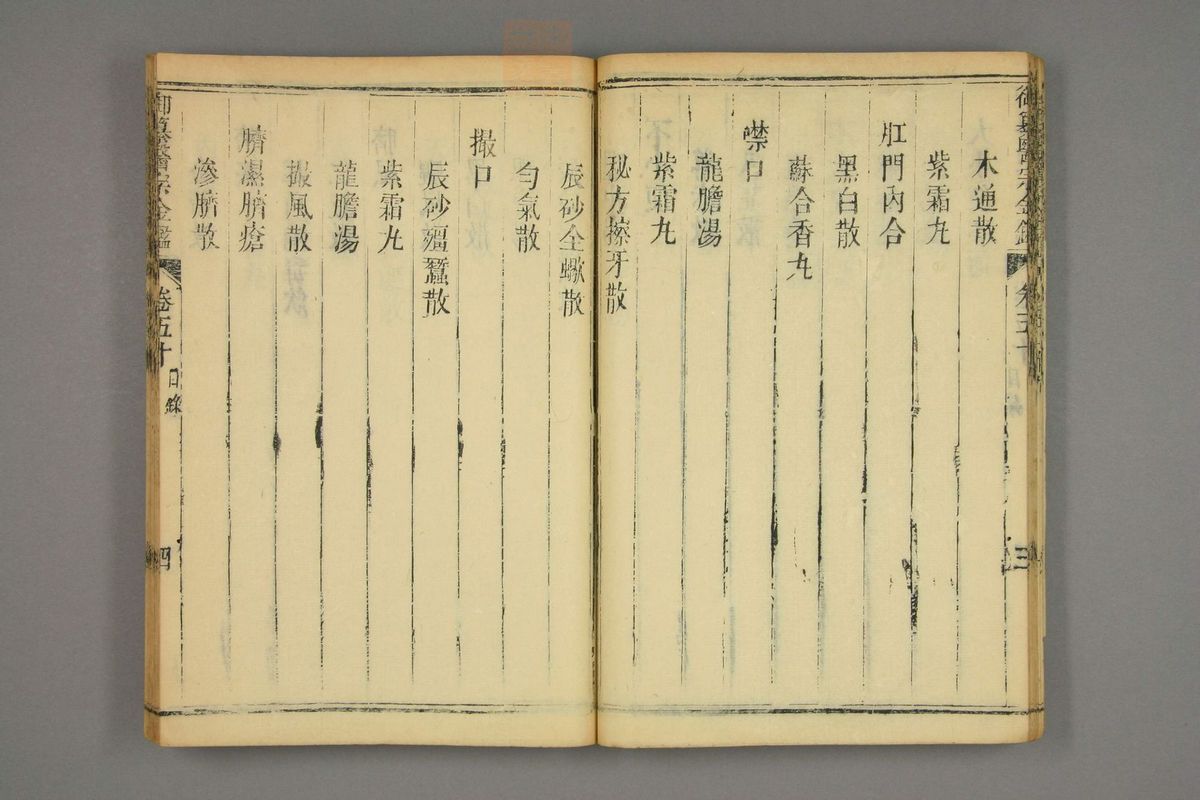 木通散
紫霜丸
肛門內合
黑白散
蘇合香丸
噤口
龍膽湯
紫霜丸
秘方擦牙散
辰砂全蠍散
勻氣散
撮口
辰砂殭蠶散
紫霜丸
龍膽湯
撮風散
臍濕臍瘡
滲臍散
御纂醫宗金鑑 卷五十 目錄 四